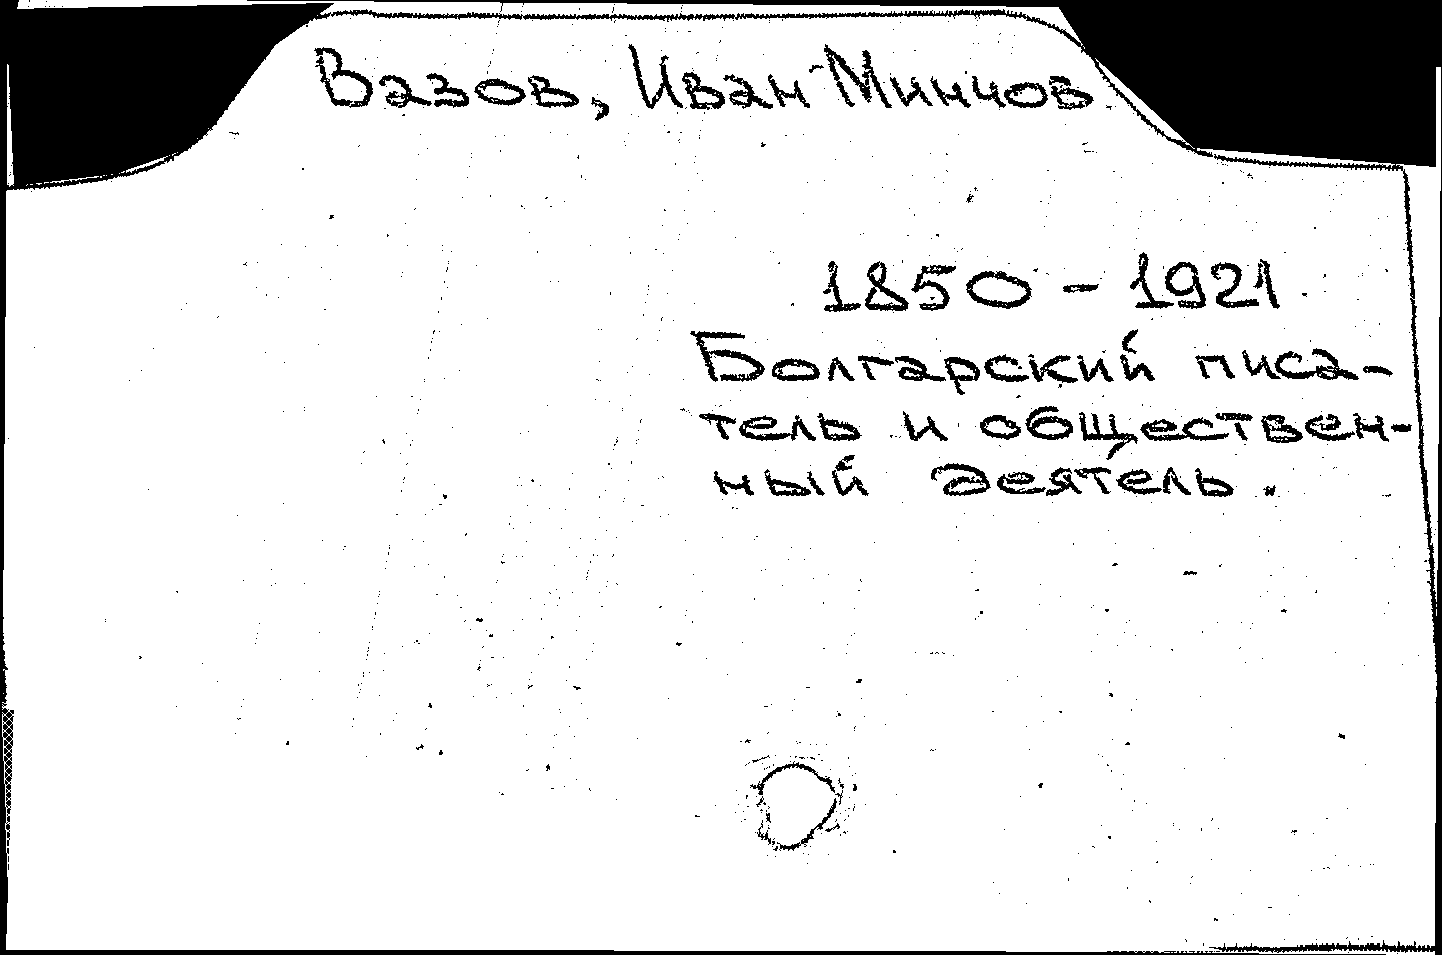 Вазов, Иван Минчов
1850 - 1921
Болгарский писа-
тель и обществен-
ный деятель.